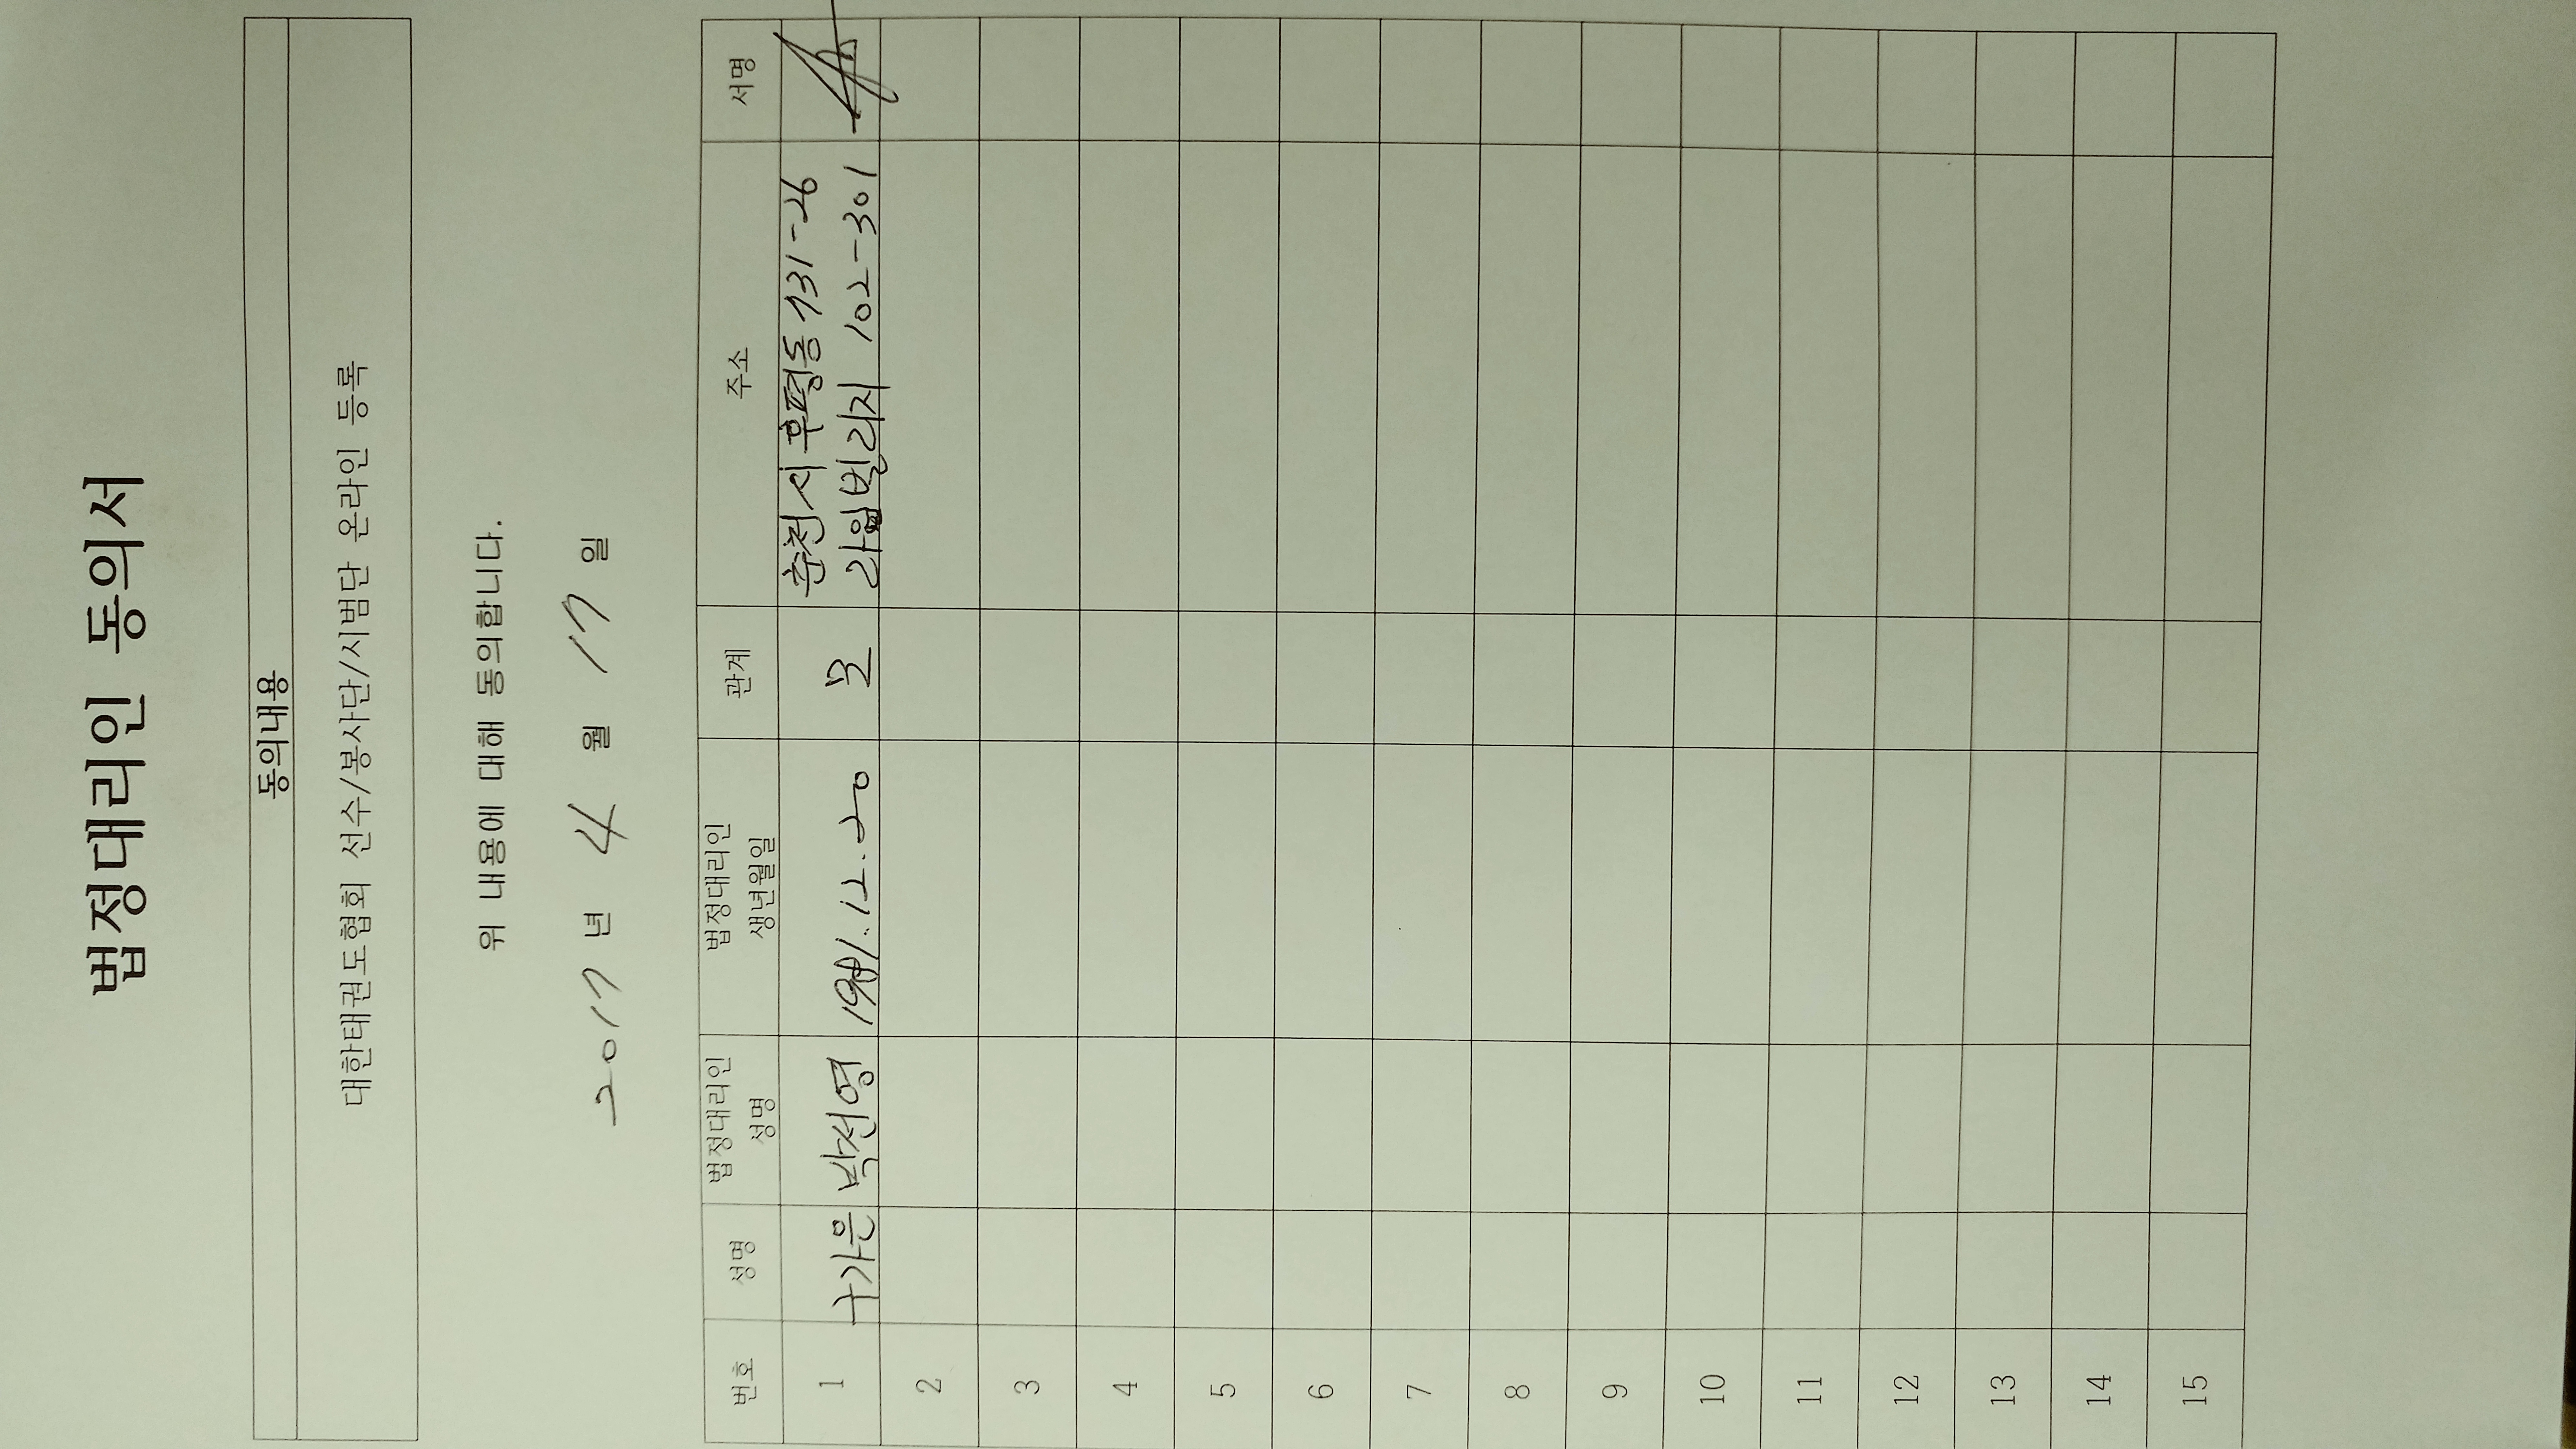 법정대리인 동의서
동의내용
대한태권도협회 선수/봉사단/시범단 온라인 등록
위 내용에 대해 동의합니다.
2017 년 4 월 17 일
번호 성명 법정대리인 성명 법정대리인 생년월일 관계 주소 서명
1 구가은 박전영 1981.12.20 모 춘천시 후평동 131-26
라임빌리지 102-301
2
3
4
5
6
7
8
9
10
11
12
13
14
15